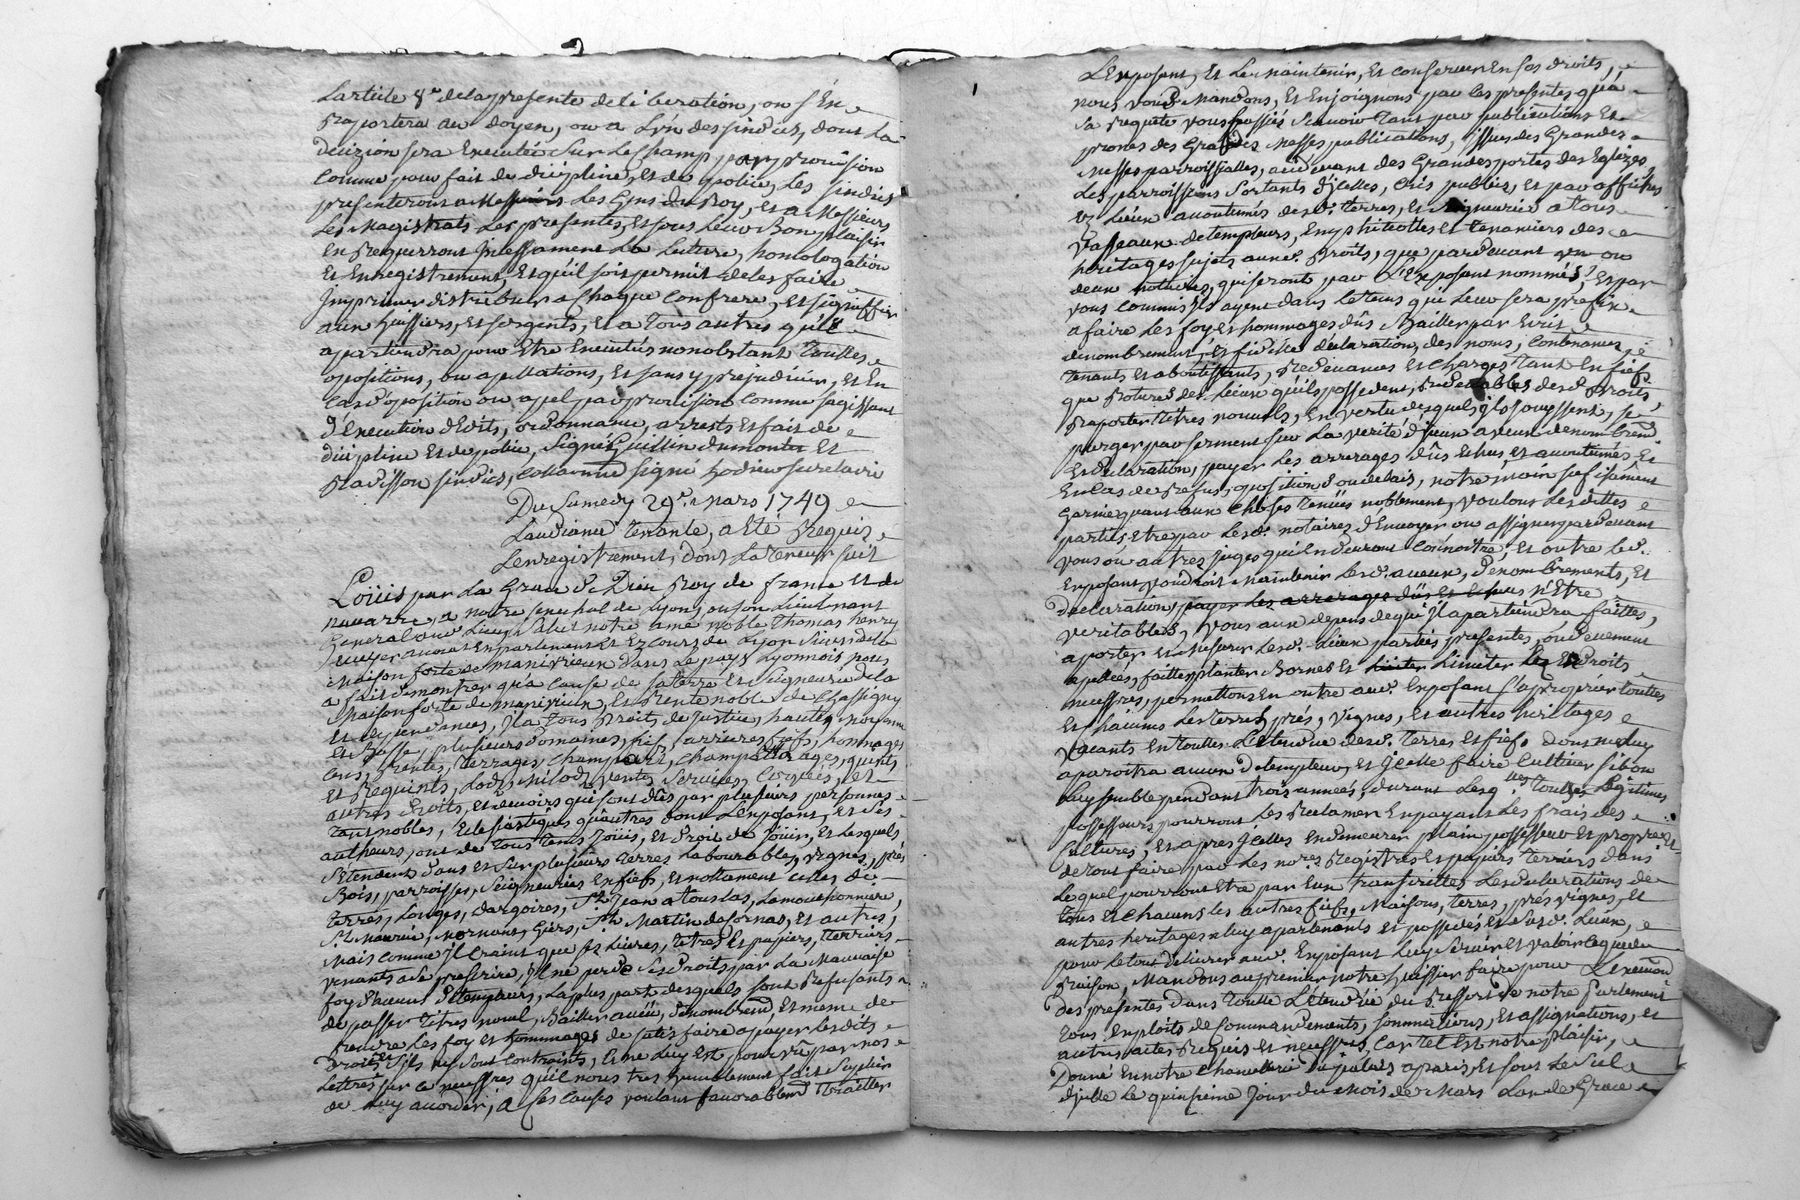 Larticle 8.e dela presente deliberation, on s'En
Raportera au doyen, ou a L'un des sindics, dont La
décizion sera Executée Sur Le champ par provision
comme pour fait de dicipline, Et de police, Les sindics
presenteront a Messieurs Les Gens du Roy, Et a Messieurs
Les Magistrats Les presentes, Et sous Leur Bon plaisir
En Requerront Incessament La Lecture, homologation
Et Enregistrement, Et qu'il soit permit de Les faire
Imprimer distribuer a Chaque Confrere, Et signiffier
aux huissiers, Et sergents, Et a Tous autres qu'il
apartiendra pour Etre Executés nonobstant Touttes
opositions, ou apellations, Et sans y prejudicier, Et En
Cas d'oposition ou apel par provision Comme sagissant
d'Execution d'Edits, ordonnance, arrests Et fait de
dicipline Et de police, Signé Guillin dumontet Et
Ravisson sindics, Collationné signé hodieu secretaire
Du Samedy 29.e Mars 1749
Laudiance Tenante, a Eté Requis
Lenregistrement, dont La Teneur suit
Loüis par La Grace de Dieu Roy de france Et de
navarre, a notre senechal de Lyon, ou son Lieutenant
General aud. Lieu, Salut notre amé noble Thomas henry
Ecuyer avocat En parlement Et Ez cours de Lyon Sieur de la
Maison forte de manivieux dans Le pays Lyonnois nous
a fait demontrer qu'a Cause de sa Terre Et Seigneurie de la
Maison forte de manivieux, Et Rente noble de Chassigny
Et dependances, Il a Tous Droits de Justice, haute, moyenne
Et Basse, plusieurs domaines, fief, arrieres fiefs, hommages
Cens, Rentes, Terrages, Champart, Champartages, quints
Et Requints, Lods, Milods, ventes Services, Corvées, et
autres Droits, et devoirs qui sont dus par plusieurs personnes
Tant nobles, Eclesiastiques qu'autres dont L'Exposant, Et ses
autheurs, ont de Tous Tems Joüis, Et Droit de Joüir, Et Lesquels
Setendent dans et sur plusieurs Terres Labourables, vignes, prés
Bois, parroisses, Seigneuries En fiefs, Et nottament celles de
Terres, Longes, dargoires, S.t Jean a Touslas, Lamouchonniere,
S.t Maurice, Mornant, Giers, S.t Martin de Cornas, Et autres,
Mais comme Il Craint que ses Livres, Titres Et papiers, Terriers
venants a Se prescrire, Il ne perde Ses Droits par La Mauvaise
foy d'aucuns detempteurs, La plus part desquels sont Refusants
de passer Titres nouvel, Bailler aveü, denombrem.t, Et meme de
Rendre Les foy et hommages de satisfaire a payer Lesdits
Droits, Sils ny sont Contraints, Et ne Luy Est pourvû par nos
Lettres sur ce necessres qu'il nous tres humblement fait Suplier
de Luy accorder, A Ces Causes voulant favorablem.t Traitter
L'Exposant, Et Le Maintenir, Et Conserver En Ses Droits,
nous vous Mandons, Et Enjoignons par Les presentes qu'a
Sa Requete vous fassiés Scavoir Tant par publications Et
prones des Grandes Messes publications, issues des Grandes
Messes parroissialles, au devant des Grandes portes des Eglizes,
Les parroissiens Sortants d'Icelles, Cris publics, Et par affiches
Ez Lieux accoutumés desd. Terres, Et Seigneuries a Tous
Vassaux detempteurs, Emphiteottes Et Tenanciers des
heritages sujets auxd. Droits, que pardevant un ou
deux notaires, qui seront par L'Exposant nommés, Et par
vous Commis, Ils ayent dans Le Tems qui Leur sera prefix
a faire Les foy Et hommages dûs Bailler par Ecrit
denombrement, Et fidelle declaration, des noms, Contenances,
Tenants Et aboutissants, Redevances Et charges Tant En fief
que Roture des Lieux qu'ils possedent, Redevables desd. Droits
Raporter Titres nouvels, En vertu desquels Ils Jouyssent, se
purger par serment sur La verité d'Iceux aveux denombrem.t
Et declaration, payer Les arrerages dûs Echus Et accoutumés Et
En Cas de Refus, oposition ou delais, notre main suffisament
Garnie quant aux choses Tenües noblement, voulons Lesdittes
parties, Etre par Lesd. notaires d'Envoyer ou assigner pardevant
vous ou autres juges qui En devront Connoitre, Et outre Led.
Exposant voudroit Maintenir Lesd. aveux, denombrements, Et
Declaration, payer Les arrerages dûs Et Echus n'Etre
veritables, vous aux depens de qui Il apartiendra faittes,
aporter Et Mesurer Lesd. Lieux parties presentes, ou deuement
apellées, faittes planter Bornes Et Limiter Les Droits
necessres, permettons En outre aud. Exposant s'aproprier touttes
Et chacunes Les Terres, prés, vignes, Et autres heritages
vacants En Toutte L'etendue desd. Terres Et fiefs dont ne Luy
aparoitra aucun detempteur, Et Icelle faire Cultiver si bon
Luy semble pendant trois années, durant Lesq.lles Touttes Legitimes
possesseurs pourront Les Reclamer En payant Les frais des
Cultures, Et apres Icelles En demeurer plain possesseur Et propre.re
de Tout faire par Les no.res Registres Et papiers Terriers dans
Lequel pourront Etre par Eux Transcrittes Les declarations de
Tous Et chacuns Les autres fiefs, Maisons, Terres, prés, vignes, Et
autres heritages a Luy apartenants Et possedés Et Sesd. Lieux,
pour Le tout delivrer aud. Exposant Luy Servir Et valoir Ce que de
Raison, Mandons au premier notre huissier faire pour L'Execution
Des presentes dans Toutte L'etendüe du Ressort de notre Parlement
Tous Exploits de Commandements, Sommations, Et assignations, Et
autres actes Requis Et necessres, Car Tel Est notre plaisir,
Donné En notre Chancellerie du palais a paris, Et sous Le Scel
d'Icelle Le quinzieme Jour du Mois de Mars L'an de Grace